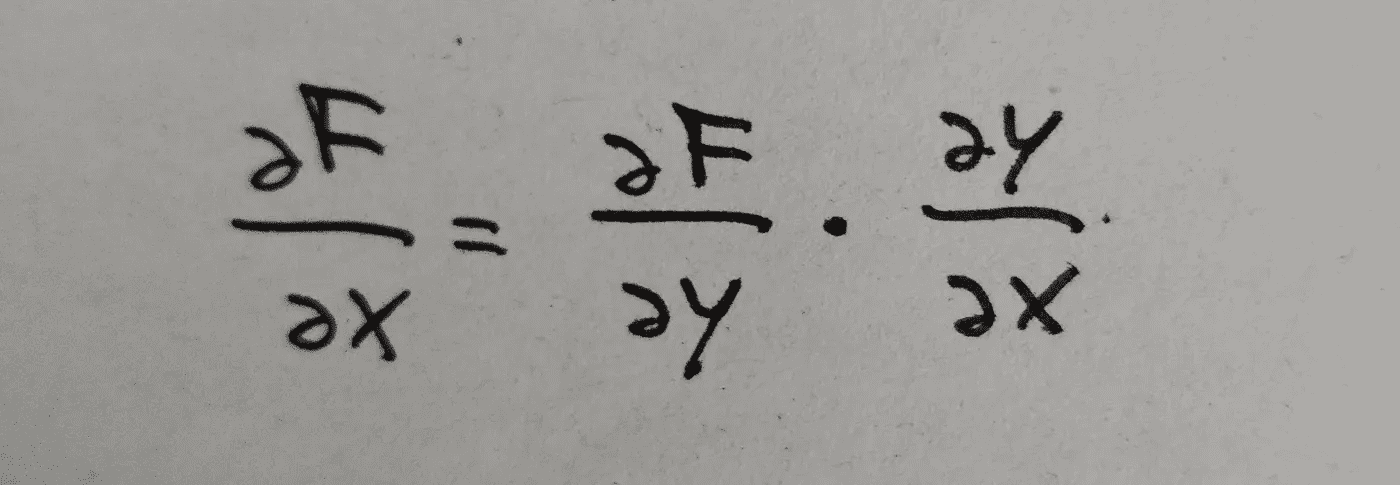 ∂F/∂x = ∂F/∂y · ∂y/∂x